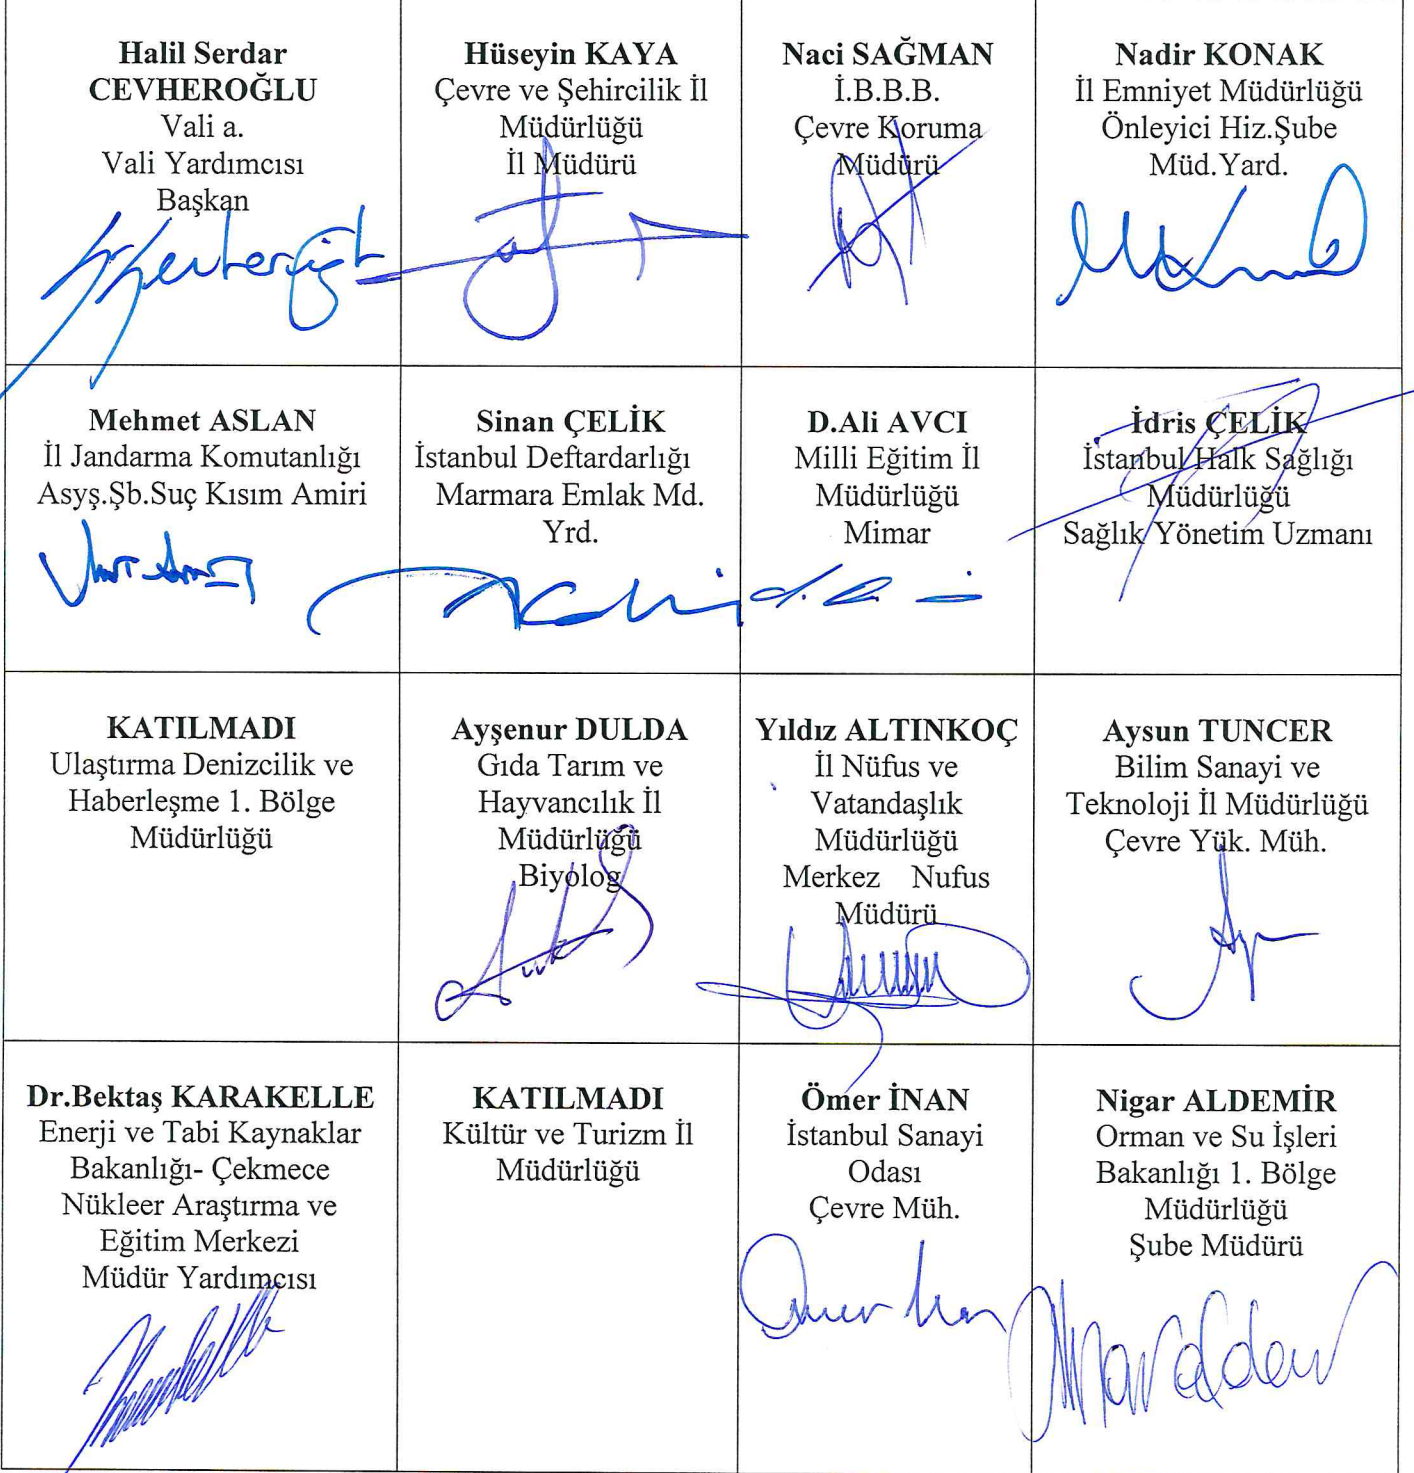 Halil Serdar
CEVHEROĞLU
Vali a.
Vali Yardımcısı
Başkan
Hüseyin KAYA
Çevre ve Şehircilik İl
Müdürlüğü
İl Müdürü
Naci SAĞMAN
İ.B.B.B.
Çevre Koruma
Müdürü
Nadir KONAK
İl Emniyet Müdürlüğü
Önleyici Hiz.Şube
Müd.Yard.
Mehmet ASLAN
İl Jandarma Komutanlığı
Asyş.Şb.Suç Kısım Amiri
Sinan ÇELİK
İstanbul Deftardarlığı
Marmara Emlak Md.
Yrd.
D.Ali AVCI
Milli Eğitim İl
Müdürlüğü
Mimar
İdris ÇELİK
İstanbul Halk Sağlığı
Müdürlüğü
Sağlık Yönetim Uzmanı
KATILMADI
Ulaştırma Denizcilik ve
Haberleşme 1. Bölge
Müdürlüğü
Ayşenur DULDA
Gıda Tarım ve
Hayvancılık İl
Müdürlüğü
Biyolog
Yıldız ALTINKOÇ
İl Nüfus ve
Vatandaşlık
Müdürlüğü
Merkez Nufus
Müdürü
Aysun TUNCER
Bilim Sanayi ve
Teknoloji İl Müdürlüğü
Çevre Yük. Müh.
Dr.Bektaş KARAKELLE
Enerji ve Tabi Kaynaklar
Bakanlığı- Çekmece
Nükleer Araştırma ve
Eğitim Merkezi
Müdür Yardımcısı
KATILMADI
Kültür ve Turizm İl
Müdürlüğü
Ömer İNAN
İstanbul Sanayi
Odası
Çevre Müh.
Nigar ALDEMİR
Orman ve Su İşleri
Bakanlığı 1. Bölge
Müdürlüğü
Şube Müdürü